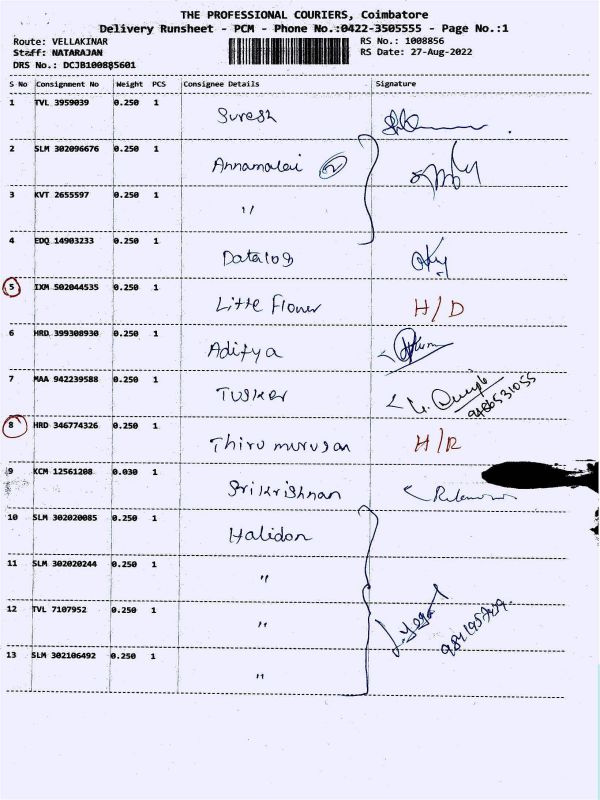 THE PROFESSIONAL COURIERS, Coimbatore
Delivery Runsheet - PCM - Phone No.:0422-3505555 - Page No.:1
Route: VELLAKINAR
Staff: NATARAJAN
DRS No.: DCJB100885601
RS No.: 1008856
RS Date: 27-Aug-2022
S No Consignment No Weight PCS Consignee Details Signature
1 TVL 3959039 0.250 1 Suresh
2 SLM 302096676 0.250 1 Annamalai 2
3 KVT 2655597 0.250 1 "
4 EDQ 14903233 0.250 1 Datalog
5 IXM 502044535 0.250 1 Little Flower H/D
6 HRD 399308930 0.250 1 Aditya
7 MAA 942239588 0.250 1 Tusker 9486531055
8 HRD 346774326 0.250 1 Thirumurugan H/R
9 KCM 12561208 0.030 1 Srikrishnan
10 SLM 302020085 0.250 1 Halidon
11 SLM 302020244 0.250 1 "
12 TVL 7107952 0.250 1 "
13 SLM 302106492 0.250 1 "